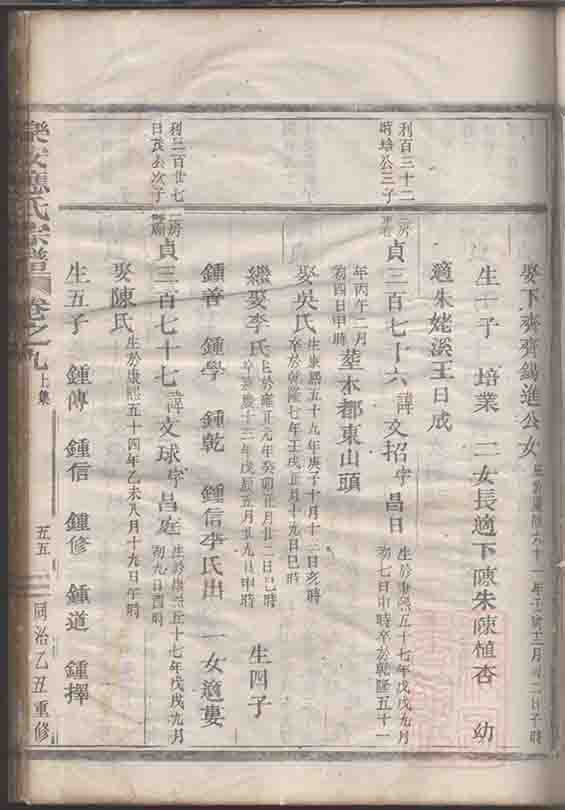 娶下齊齊錫進公女 生於康熙六十一年壬寅十二月初二日子時
生一子 培業 二女長適下陳朱陳植杏 幼
適朱姥溪王日成
利百三十二房
時培公三子
貞三百七十六諱文招字昌日 生於康熙五十七年戊戌九月
初七日申時卒於乾隆五十一
年丙午二月
初四日申時
塟本都東山頭
娶吳氏 生康熙五十九年庚子十月十二日亥時
卒於乾隆七年壬戌正月十九日巳時
繼娶李氏 生於雍正元年癸卯正月廿二日巳時
卒嘉慶十三年戊辰五月廿九日申時
生四子
鍾善 鍾學 鍾乾 鍾信李氏出 一女適婁
利三百廿七房
日 公次子
貞三百七十七諱文球字昌庭 生於康熙五十七年戊戌九月
初九日酉時
娶陳氏 生於康熙五十四年乙未八月十九日午時
生五子 鍾傳 鍾信 鍾修 鍾道 鍾擇
樂安應氏宗譜 卷之九 上集 五五 同治乙丑重修